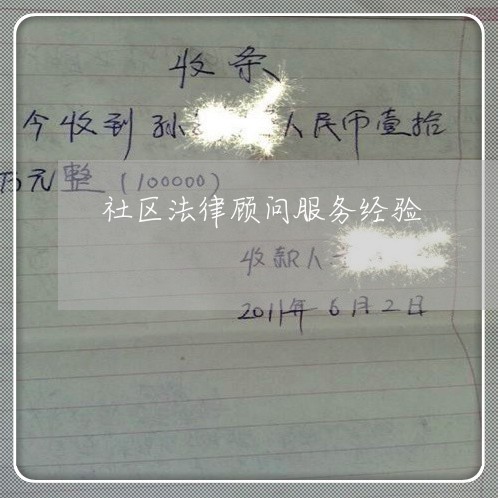 收条
今收到孙 人民币壹拾
万元整(100000)
社区法律顾问服务经验
收款人
2011年6月2日